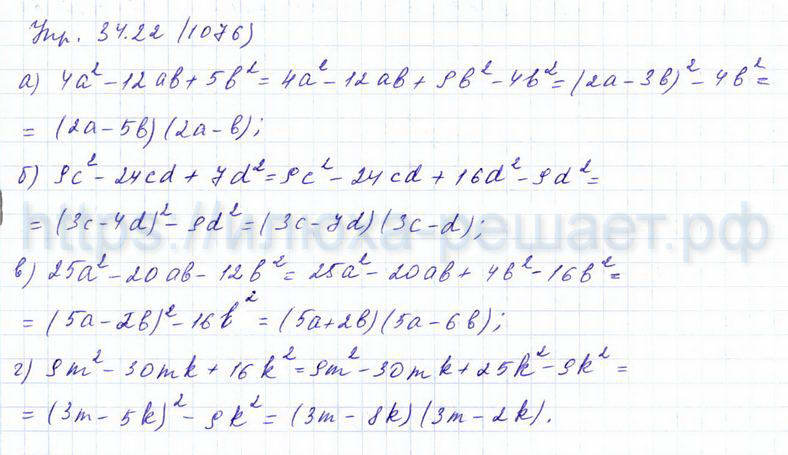 Упр. 34.22 (1076)
а) 4a² - 12ab + 5b² = 4a² - 12ab + 9b² - 4b² = (2a - 3b)² - 4b² =
= (2a - 5b)(2a - b);
б) 9c² - 24cd + 7d² = 9c² - 24cd + 16d² - 9d² =
= (3c - 4d)² - 9d² = (3c - 7d)(3c - d);
https://илюха-решает.рф
в) 25a² - 20ab - 12b² = 25a² - 20ab + 4b² - 16b² =
= (5a - 2b)² - 16b² = (5a + 2b)(5a - 6b);
г) 9m² - 30mk + 16k² = 9m² - 30mk + 25k² - 9k² =
= (3m - 5k)² - 9k² = (3m - 8k)(3m - 2k).